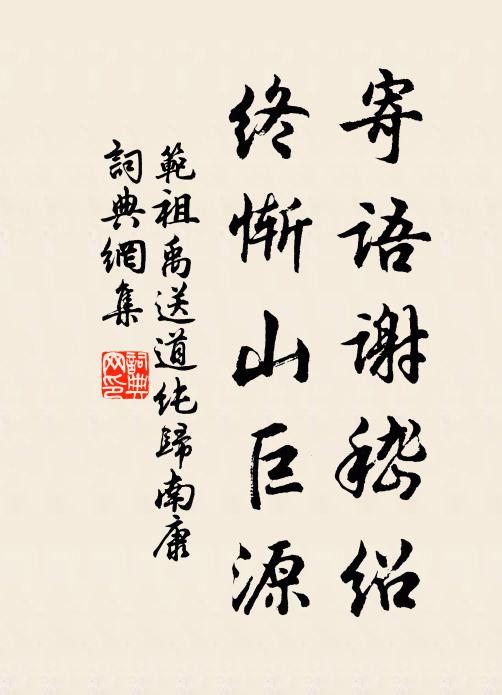 寄语谢嵇绍
终惭山巨源
範祖禹送道纯歸南康
詞典網集
詞典网印